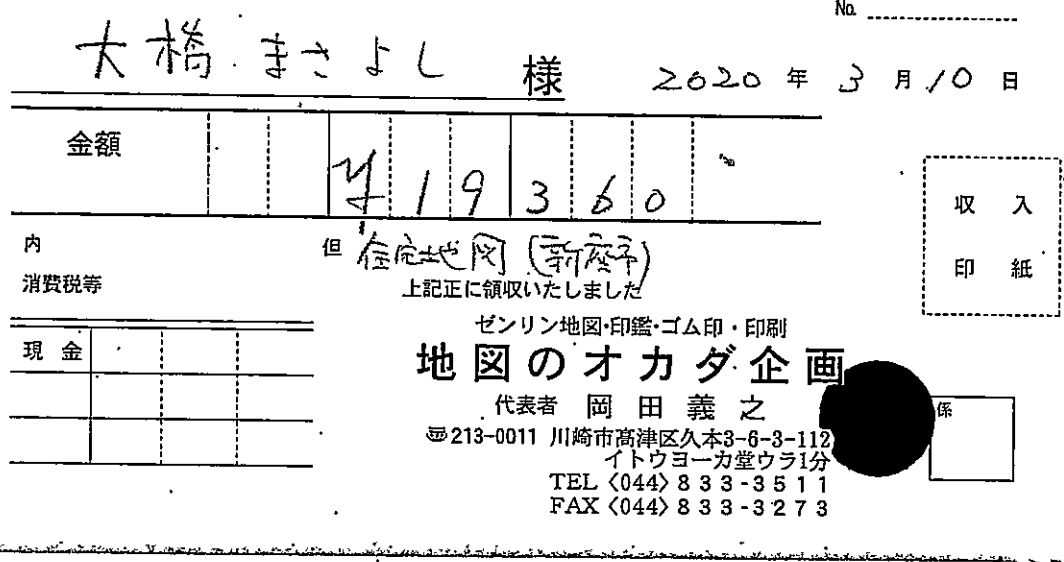 No.
大橋 まさよし 様 2020年 3月 10日
金額 ¥19360
収入
印紙
内 但 住宅地図(新座市)
消費税等 上記正に領収いたしました
ゼンリン地図・印鑑・ゴム印・印刷
現金 地図のオカダ企画
代表者 岡田義之
係
〒213-0011 川崎市高津区久本3-6-3-112
イトウヨーカ堂ウラ1分
TEL〈044〉833-3511
FAX〈044〉833-3273